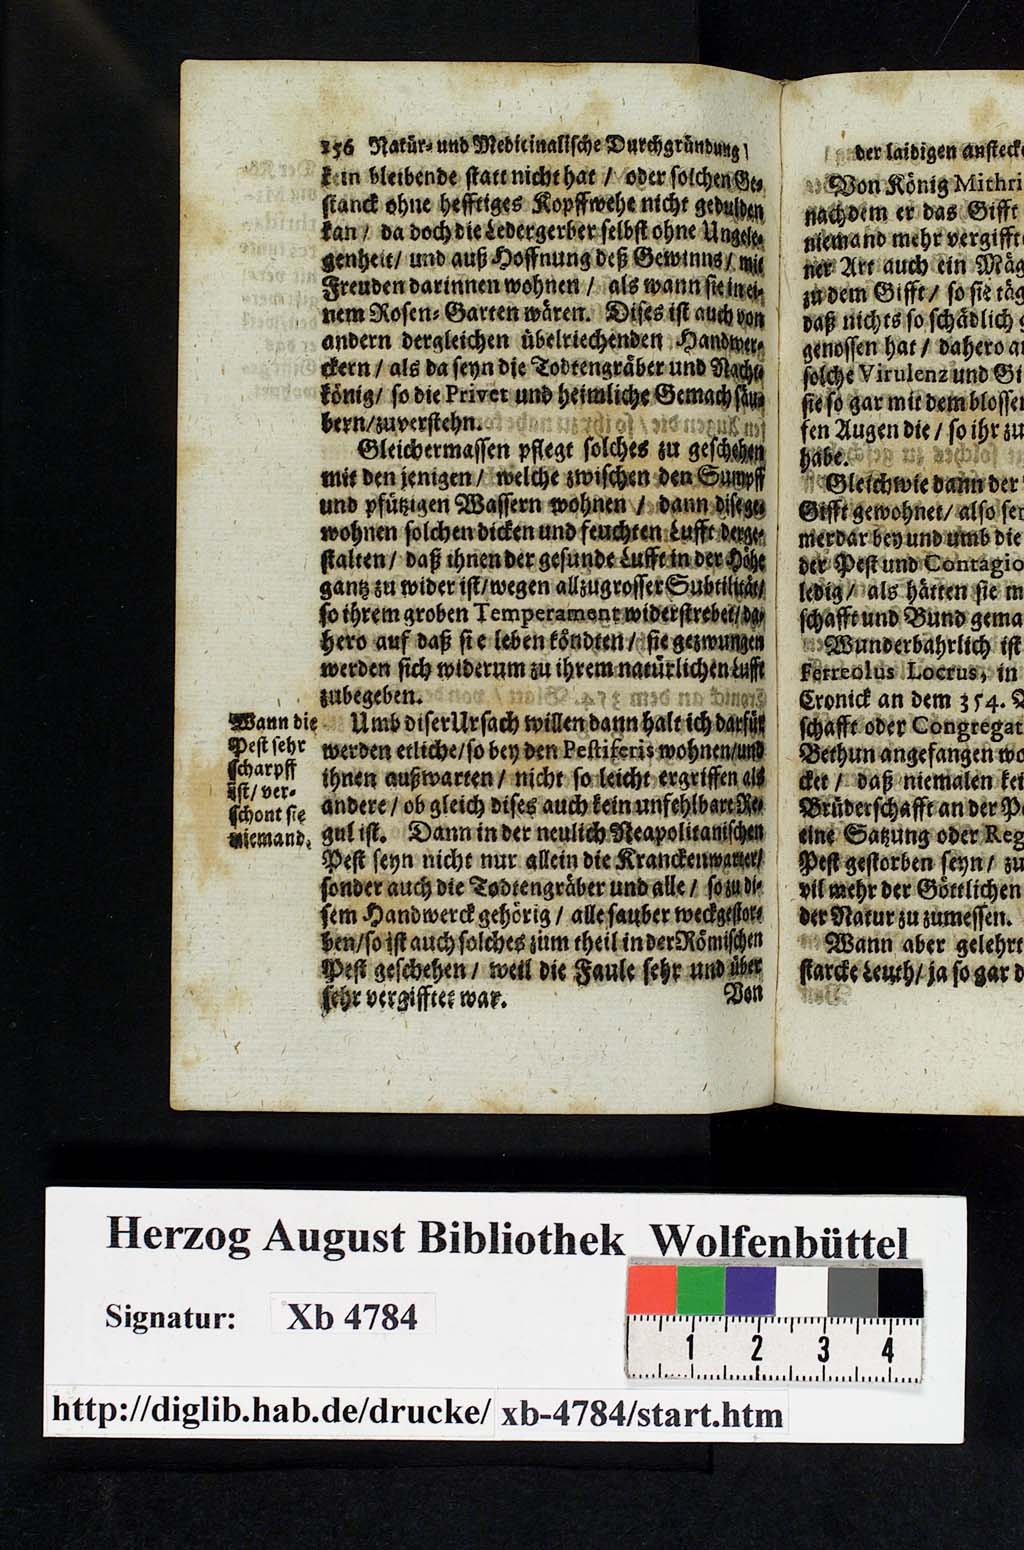 156 Natür- und Medicinalische Durchgründung/
kein bleibende statt nicht hat / oder solchen Ge-
stanck ohne hefftiges Kopffwehe nicht gedulden
kan / da doch die Ledergerber selbst ohne Ungele-
genheit / und auß Hoffnung deß Gewinns / mit
Freuden darinnen wohnen / als wann sie in ei-
nem Rosen-Garten wären. Dises ist auch von
andern dergleichen übelriechenden Handwer-
ckern / als da seyn die Todtengräber und Nacht-
könig / so die Privet und heimliche Gemach säu-
bern / zuverstehn.
Gleichermassen pflegt solches zu geschehen
mit den jenigen / welche zwischen den Sumpff
und pfützigen Wassern wohnen / dann dise ge-
wohnen solchen dicken und feuchten Lufft derge-
stalten / daß ihnen der gesunde Lufft in der Höhe
gantz zu wider ist / wegen allzugrosser Subtilität /
so ihrem groben Temperament widerstrebet / da-
hero auf daß sie leben köndten / sie gezwungen
werden sich widerum zu ihrem natürlichen Lufft
zubegeben.
Wann die
Pest sehr
scharpff
ist / ver-
schont sie
niemand.
Umb diser Ursach willen dann halt ich darfür
werden etliche / so bey den Pestiferis wohnen / und
ihnen außwarten / nicht so leicht ergriffen als
andere / ob gleich dises auch kein unfehlbare Re-
gul ist. Dann in der neulich Neapolitanischen
Pest seyn nicht nur allein die Kranckenwarter /
sonder auch die Todtengräber und alle / so zu di-
sem Handwerck gehörig / alle sauber weckgestor-
ben / so ist auch solches zum theil in der Römischen
Pest geschehen / weil die Faule sehr und über
sehr vergifftet war.
Von
der laidigen ansteck
Von König Mithri
nachdem er das Gifft
niemand mehr vergifft
ner Art auch ein Mäg
zu dem Gifft / so sie täg
daß nichts so schädlich
genossen hat / dahero
solche Virulenz und Gi
sie so gar mit dem blossen
fen Augen die / so ihr zu
habe.
Gleichwie dann der
Gifft gewohnet / also
merdar bey und umb die
der Pest und Contagio
ledig / als hätten sie m
schafft und Bund gema
Wunderbahrlich ist
Ferreolus Locrus, in
Cronick an dem 354.
schafft oder Congregat
Bethun angefangen wo
cket / daß niemalen kei
Brüderschafft an der Pe
eine Satzung oder Reg
Pest gestorben seyn / zu
vil mehr der Göttlichen
der Natur zu zumessen.
Wann aber gelehrt
starcke Leuth / ja so gar d
Herzog August Bibliothek Wolfenbüttel
Signatur: Xb 4784
1 2 3 4
http://diglib.hab.de/drucke/ xb-4784/start.htm